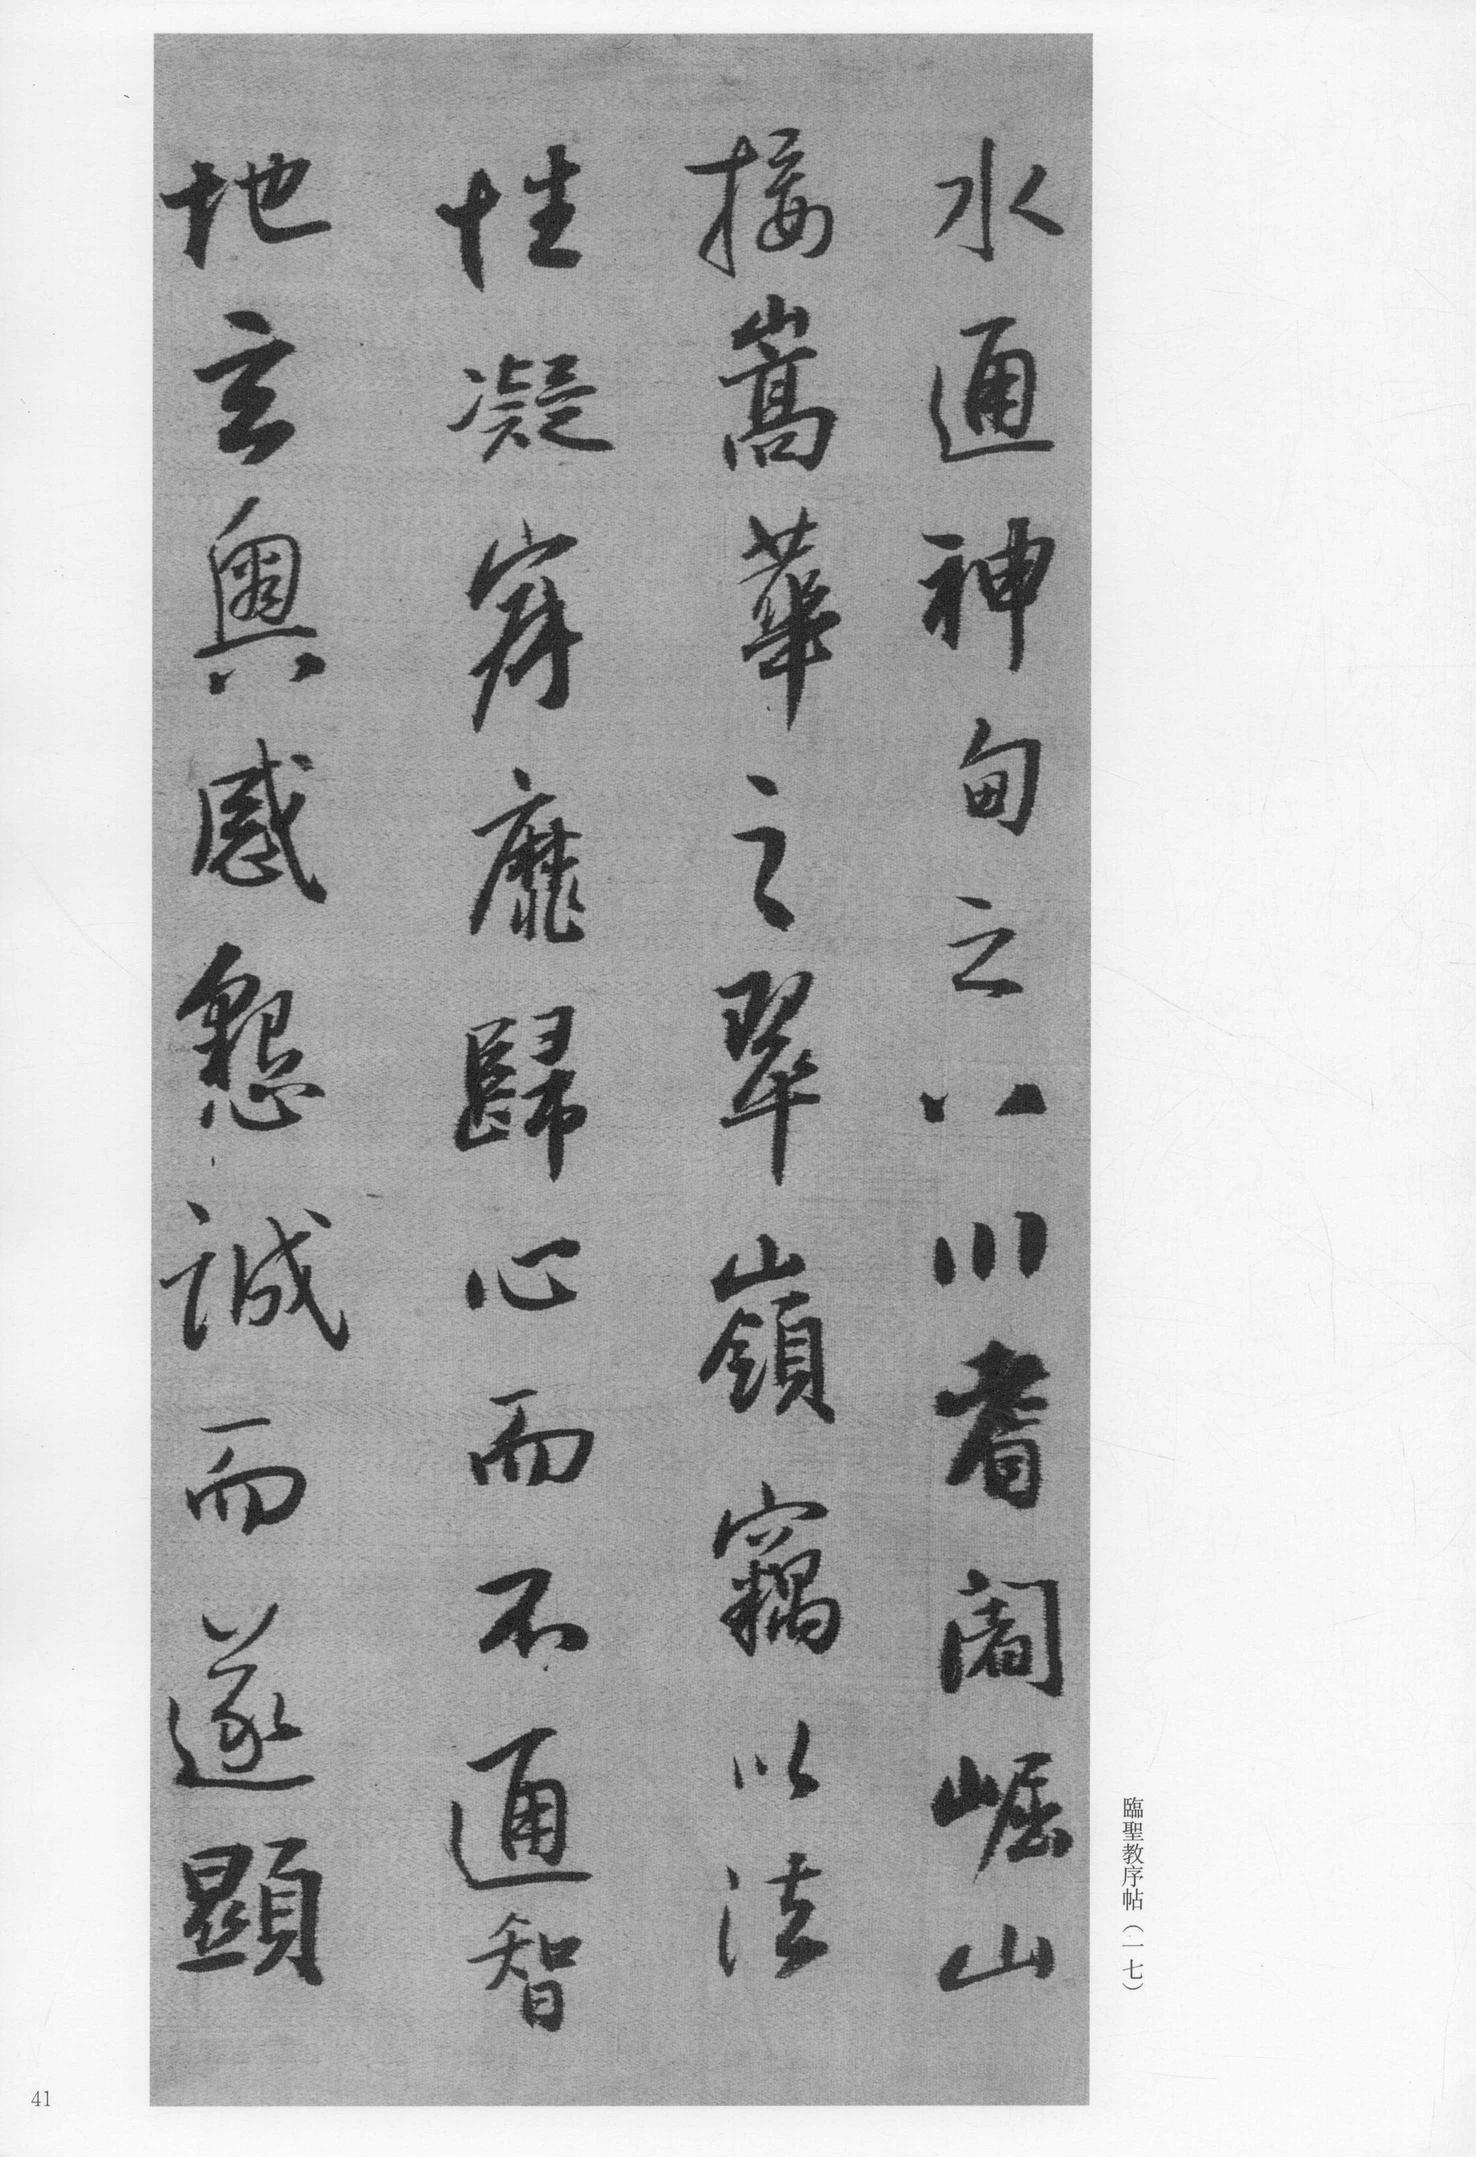 水通神甸之八川耆闍崛山
接嵩華之翠嶺竊以法
性凝寂靡歸心而不通智
地玄奧感懇誠而遂顯
臨聖教序帖（一七）
41